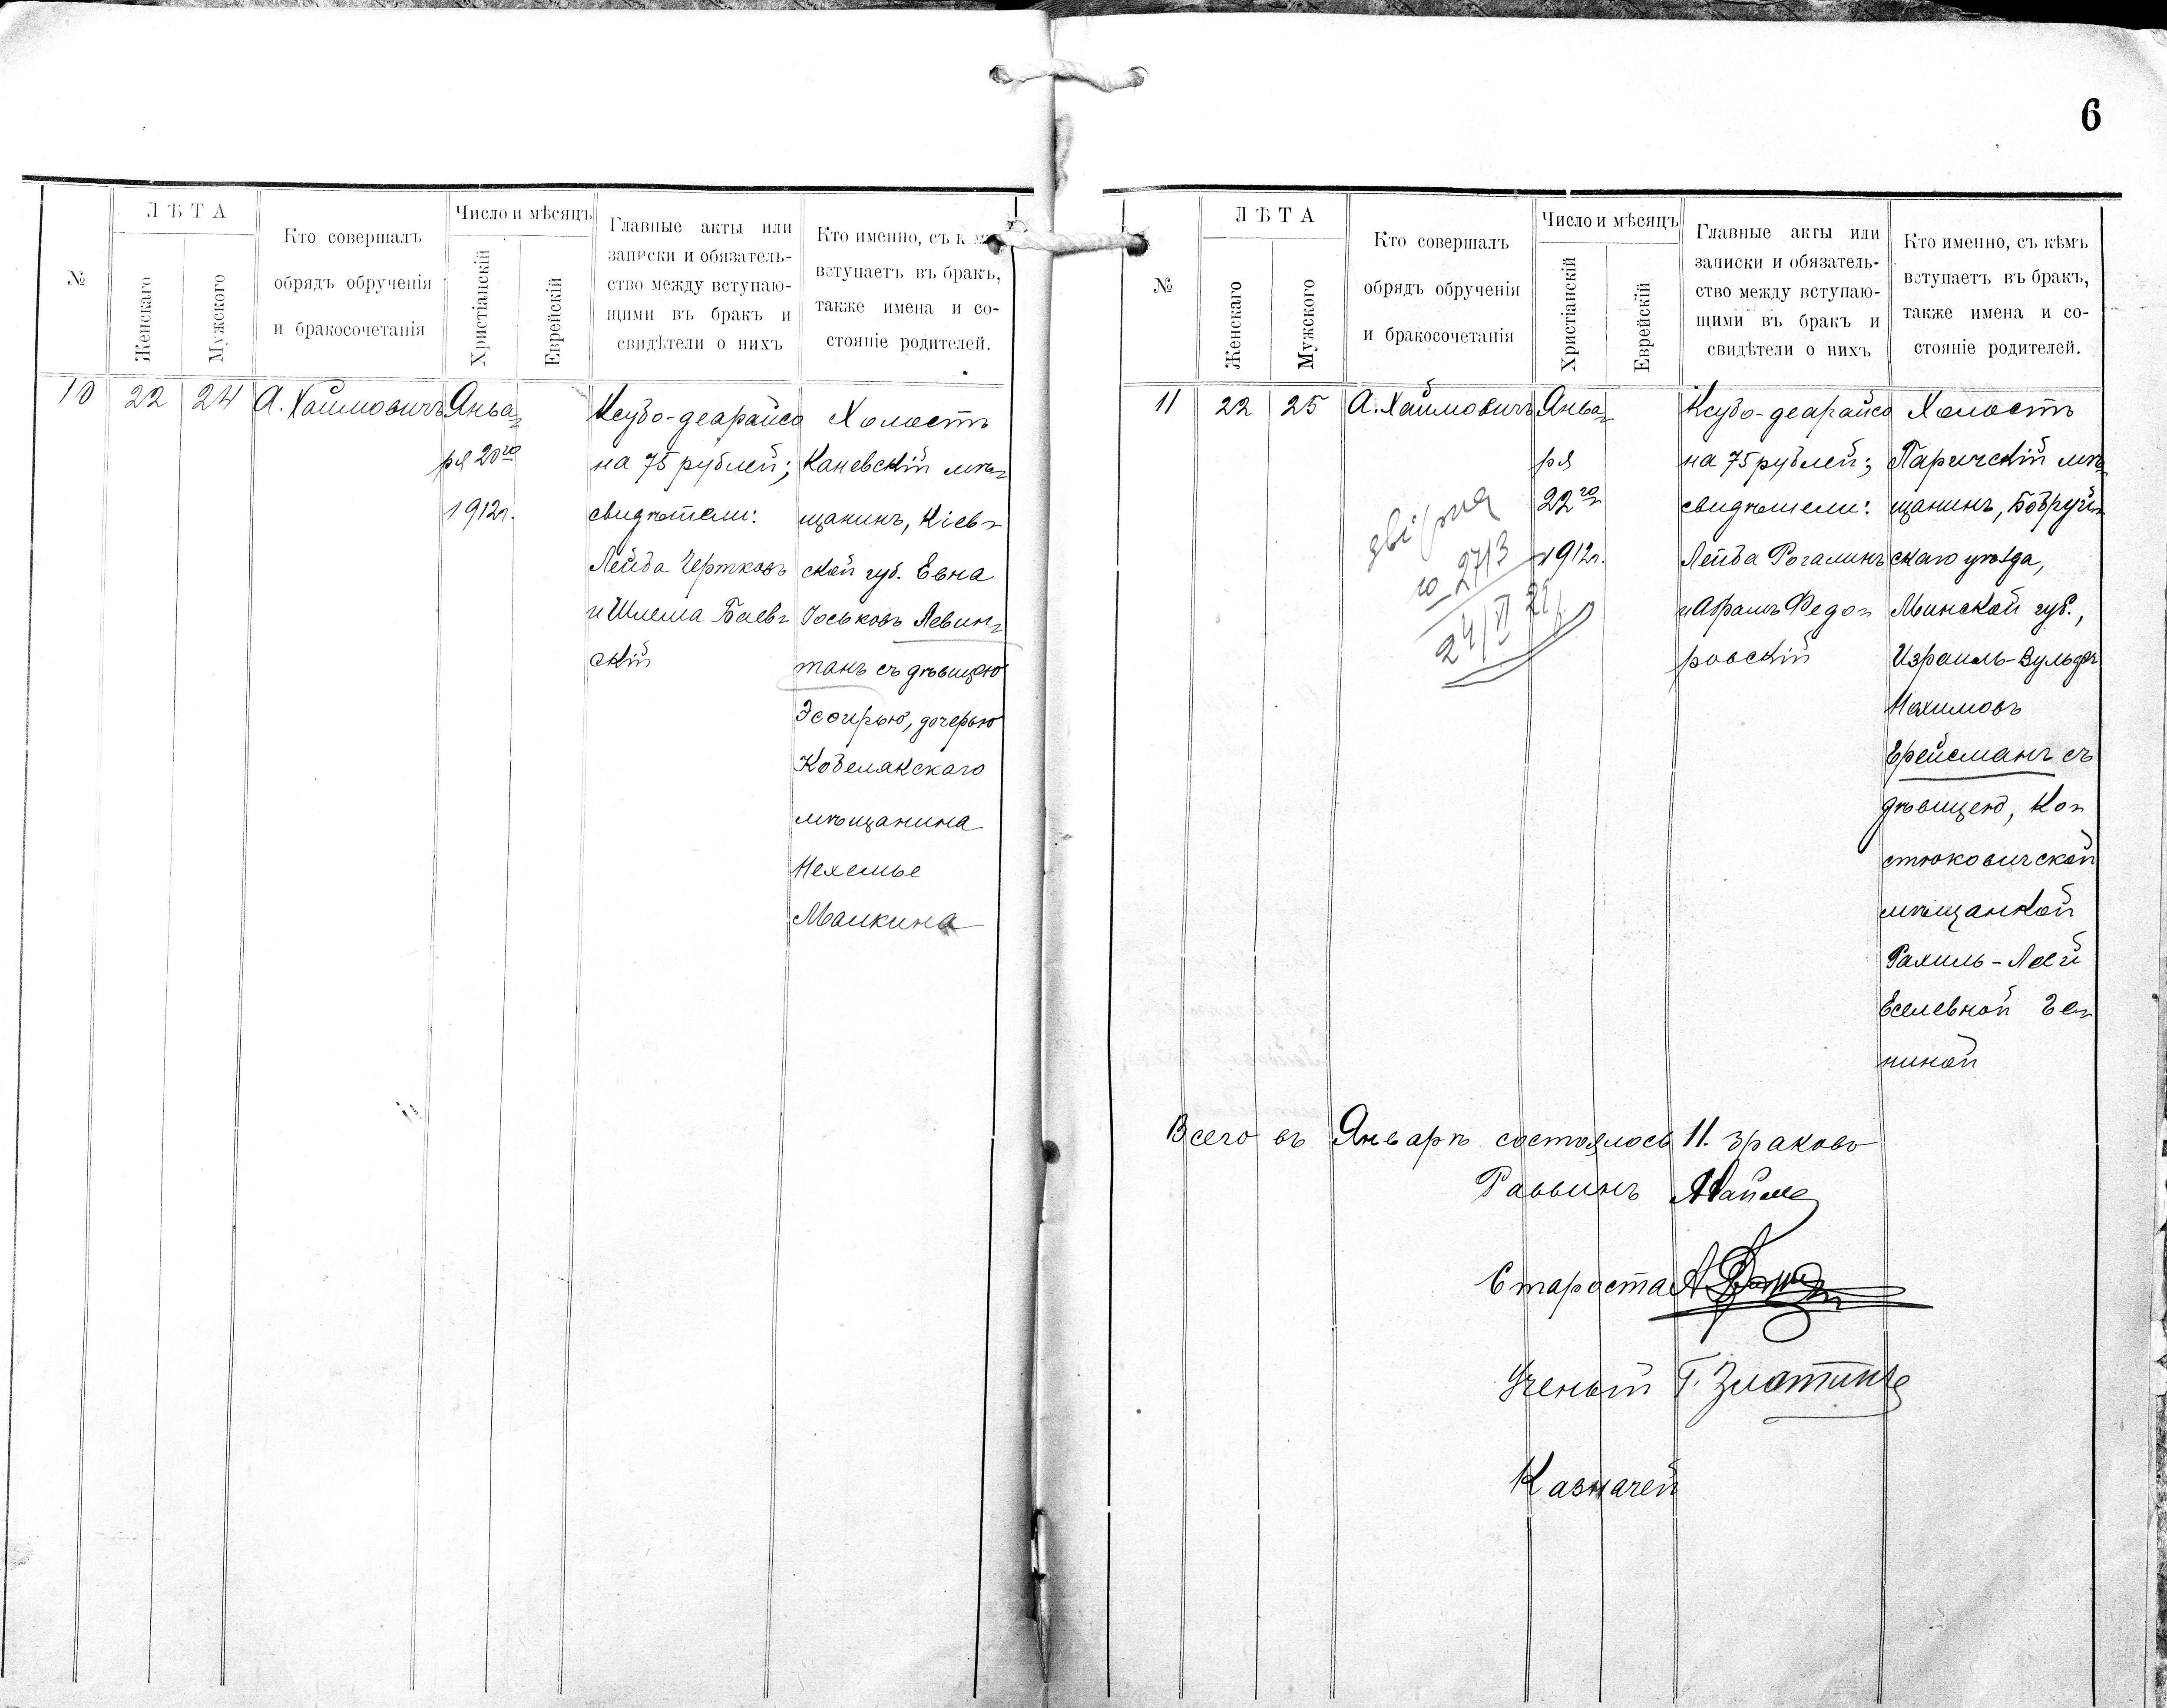 6
№
ЛѢТА
Женскаго
Мужского
Кто совершалъ
обрядъ обрученія
и бракосочетанія
Число и мѣсяцъ
Христіанскій
Еврейскій
Главные акты или
записки и обязатель-
ство между вступаю-
щими въ бракъ и
свидѣтели о нихъ
Кто именно, съ
вступаетъ въ бракъ,
также имена и со-
стояніе родителей.
10
22
24
А. Хаймовичъ
Янва-
ря 20го
1912г.
Ксубо-деарайсо
на 75 рублей;
свидѣтели:
Лейба Чертковъ
и Шлема Баев-
скій
Холостъ
Каневскій мѣ-
щанинъ, Кіев-
ской губ. Евна
Іоськовъ Левин-
танъ съ дѣвицею
Эсѳирью, дочерью
Кобелякскаго
мѣщанина
Нехемье
Малкина
№
ЛѢТА
Женскаго
Мужского
Кто совершалъ
обрядъ обрученія
и бракосочетанія
Число и мѣсяцъ
Христіанскій
Еврейскій
Главные акты или
записки и обязатель-
ство между вступаю-
щими въ бракъ и
свидѣтели о нихъ
Кто именно, съ кѣмъ
вступаетъ въ бракъ,
также имена и со-
стояніе родителей.
11
22
25
А. Хаймовичъ
Янва-
ря
22го
1912г.
2713
24/VI
Ксубо-деарайсо
на 75 рублей;
свидѣтели:
Лейба Рогалинъ
и Абрамъ Федо-
ровскій
Холостъ
Паричскій мѣ-
щанинъ, Бобруй-
скаго уѣзда,
Минской губ.,
Израиль-Вульфъ
Нохимовъ
Ерейсманъ съ
дѣвицею, Ко-
стюковичской
мѣщанкой
Рахиль-Леей
Еселевной Ге-
ниной
Всего въ Январѣ состоялось 11. браковъ
Раввинъ
Староста А
Ученый Г. Злотинъ
Казначей